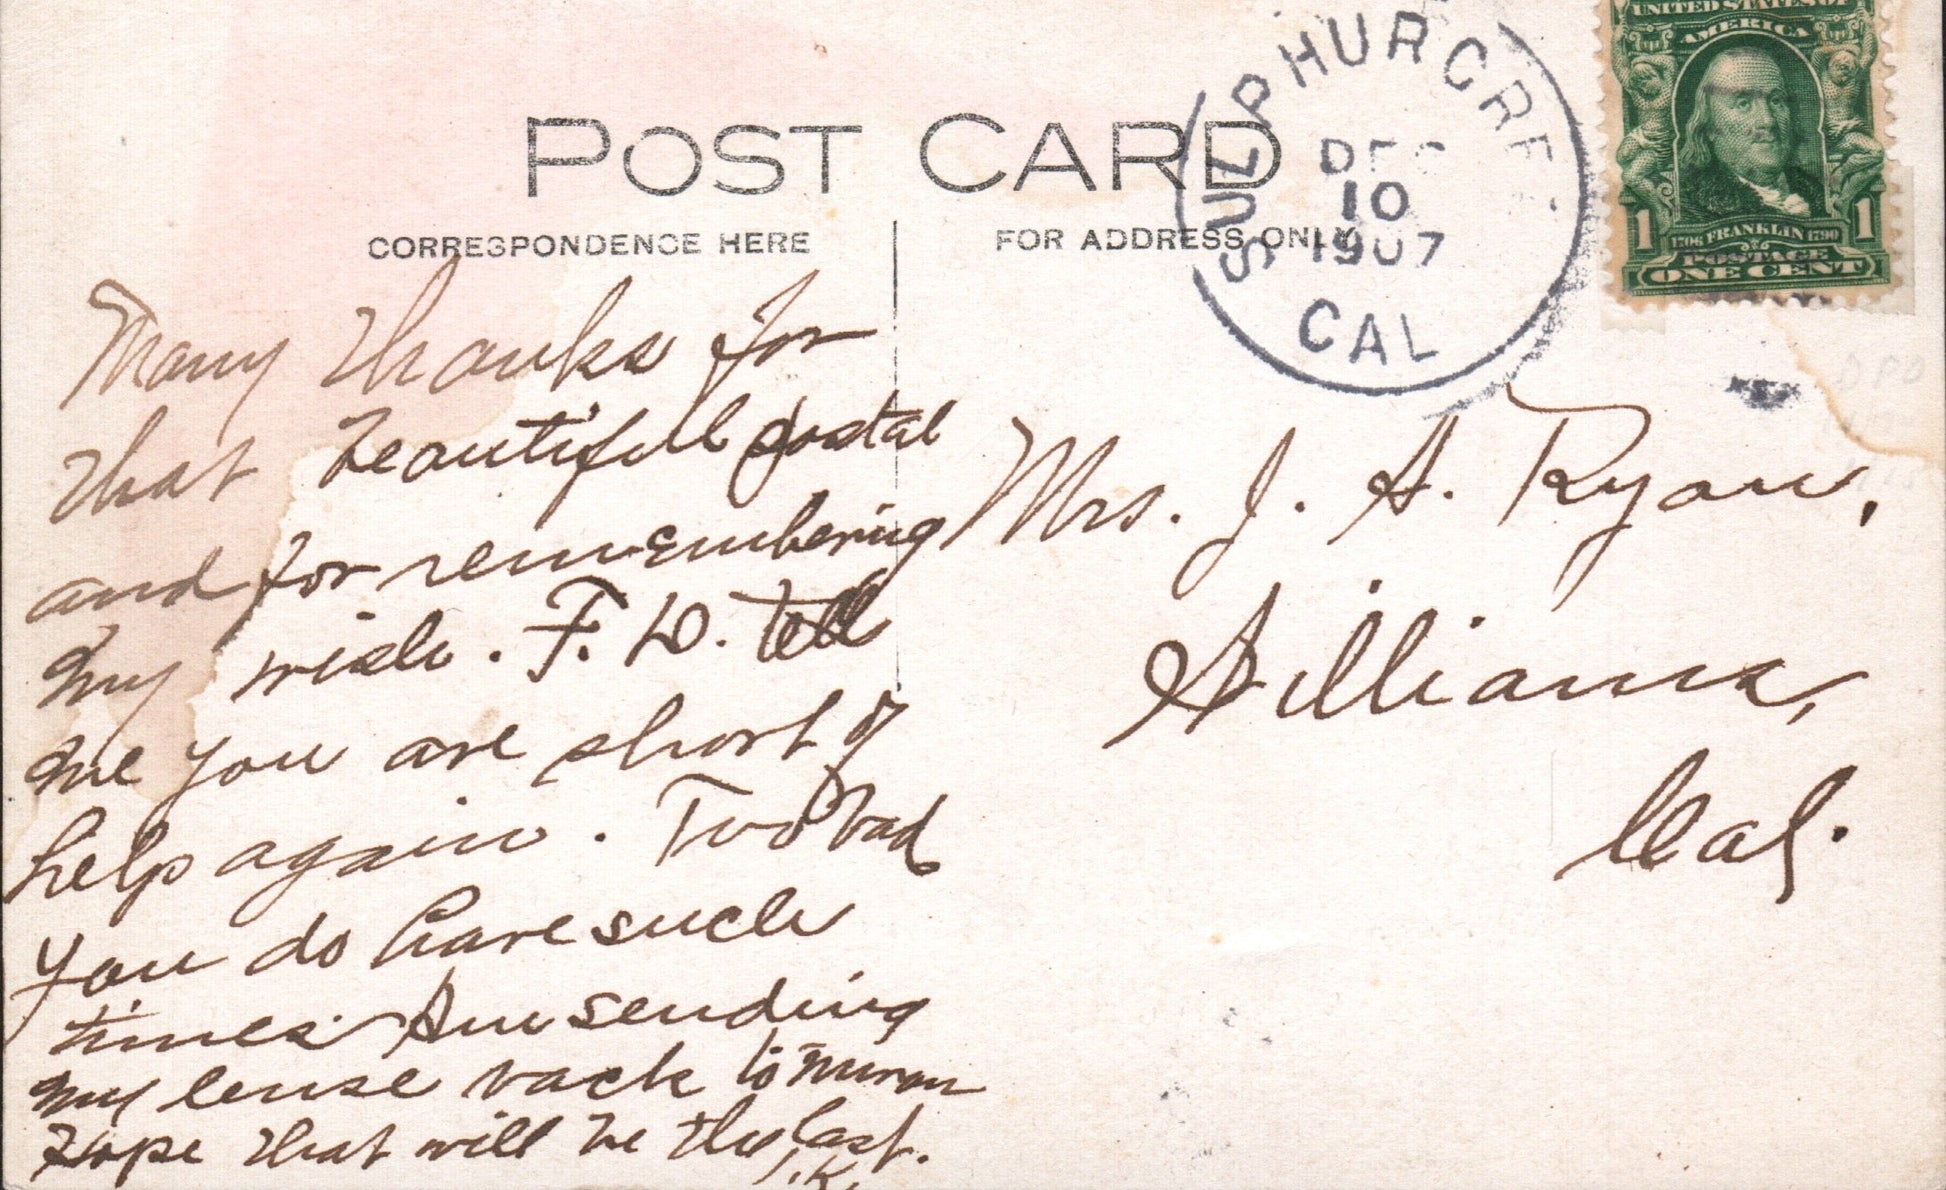 UNITED STATES OF
AMERICA
1 1706 FRANKLIN 1790 1
POSTAGE
ONE CENT
SULPHUR CRE
DEC
10
1907
CAL
POST CARD
CORRESPONDENCE HERE
FOR ADDRESS ONLY
Many thanks for
that beautiful postal
and for remembering
my wish. F. D. tell
me you are short of
help again. Too bad
you do have such
times. Am sending
my lense back to
Hope that will be the last.
Mrs. J. A. Ryan,
Williams,
Cal.